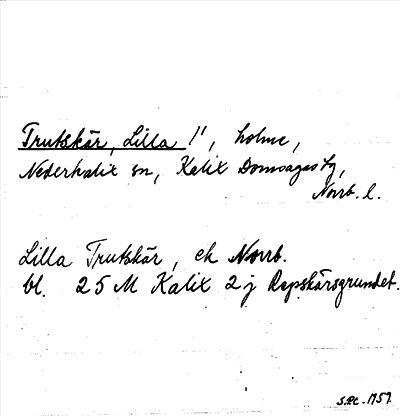 Trutskär, Lilla l', holme,
Nederkalix sn, Kalix Domsagas tg,
Norrb. l.
Lilla Trutskär, ek Norrb.
bl. 25 M Kalix 2 j Repskärsgrundet.
1959